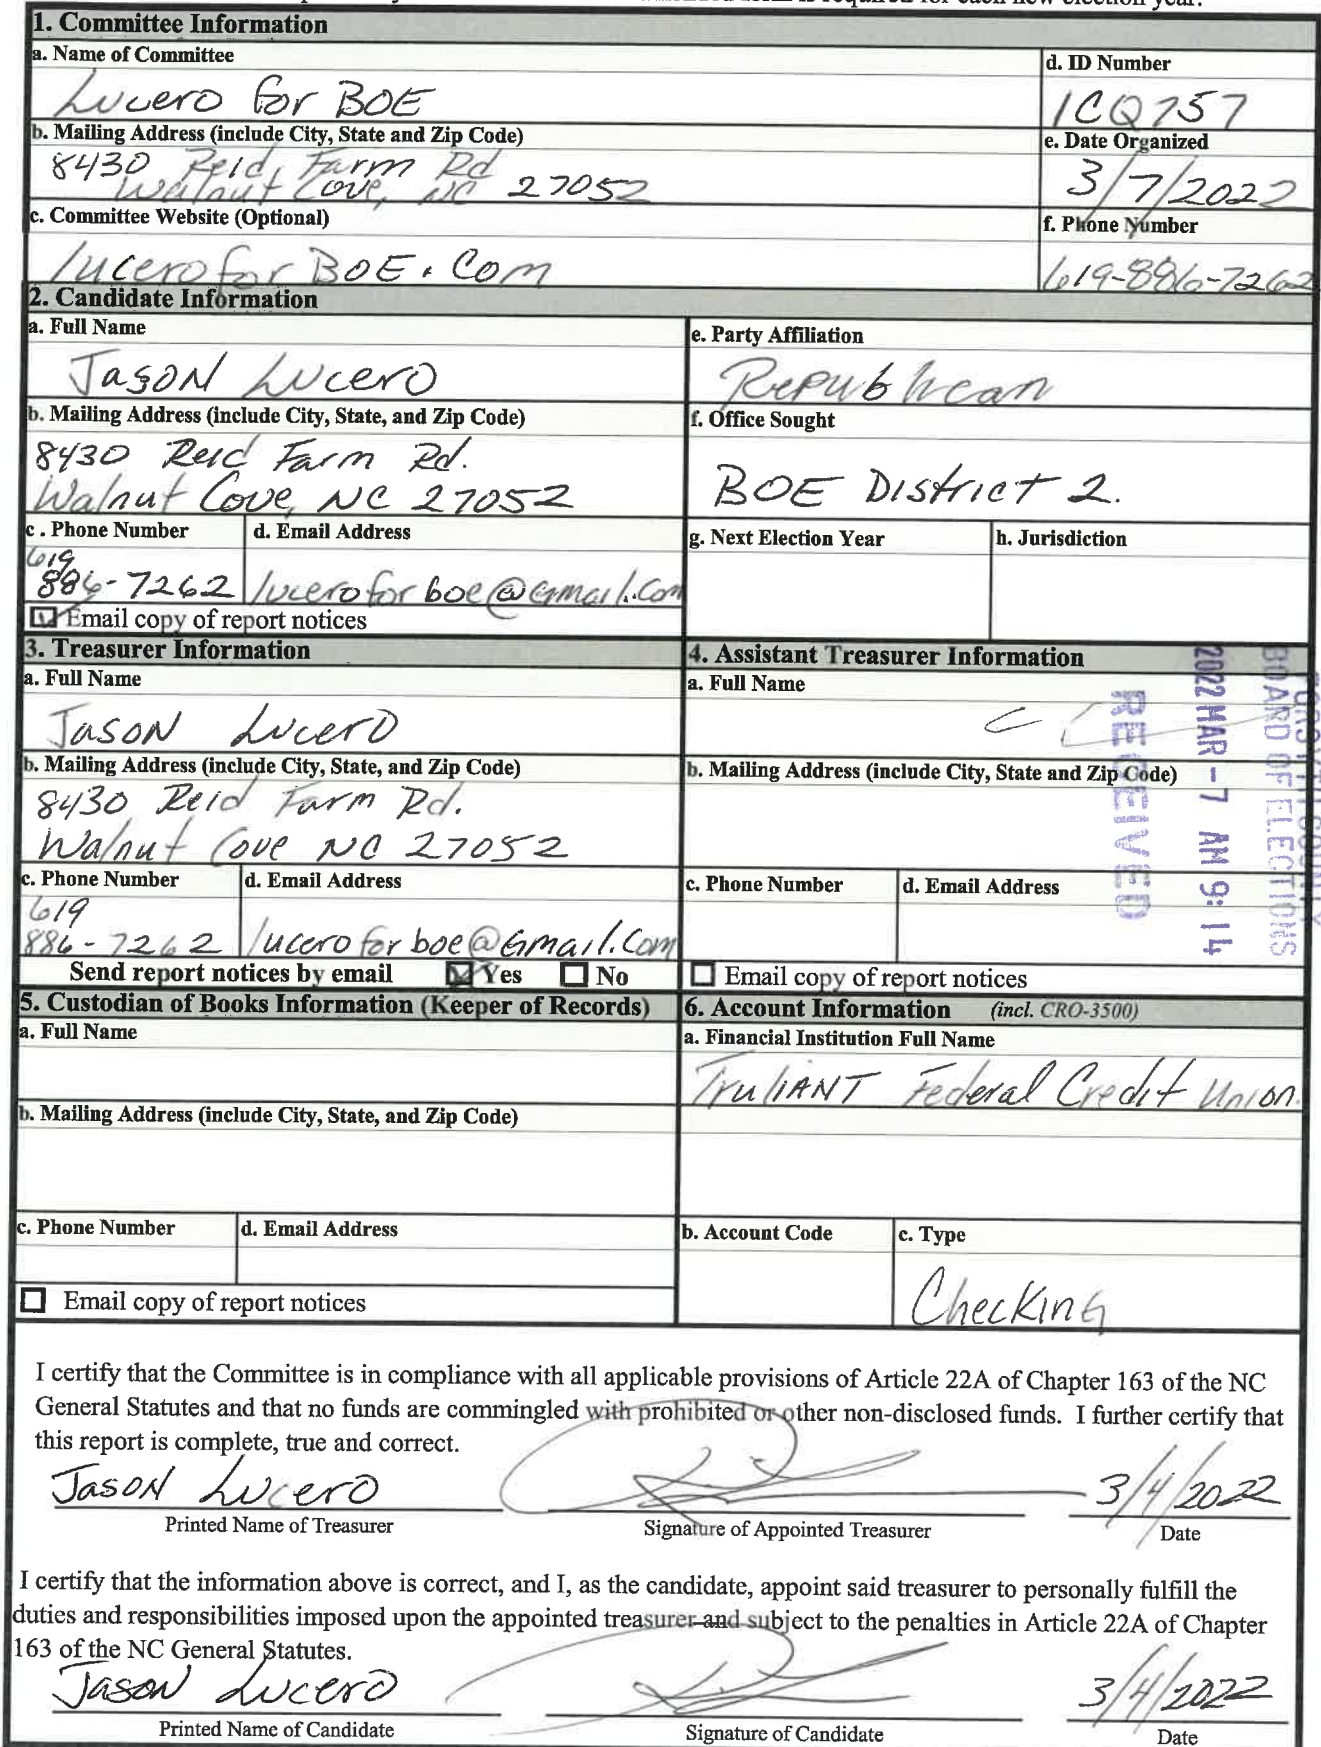 1. Committee Information
a. Name of Committee
Lucero for BOE
d. ID Number
1CQ757
b. Mailing Address (include City, State and Zip Code)
8430 Reid Farm Rd
Walnut Cove, NC 27052
e. Date Organized
3/7/2022
c. Committee Website (Optional)
luceroforBOE.Com
f. Phone Number
619-886-7262
2. Candidate Information
a. Full Name
Jason Lucero
e. Party Affiliation
Republican
b. Mailing Address (include City, State, and Zip Code)
8430 Reid Farm Rd.
Walnut Cove, NC 27052
f. Office Sought
BOE District 2.
c. Phone Number
619
886-7262
d. Email Address
luceroforboe@Gmail.Com
g. Next Election Year
h. Jurisdiction
Email copy of report notices
3. Treasurer Information
a. Full Name
Jason Lucero
b. Mailing Address (include City, State, and Zip Code)
8430 Reid Farm Rd.
Walnut Cove NC 27052
c. Phone Number
619
886-7262
d. Email Address
luceroforboe@Gmail.Com
Send report notices by email Yes No
4. Assistant Treasurer Information
a. Full Name
b. Mailing Address (include City, State and Zip Code)
c. Phone Number
d. Email Address
Email copy of report notices
FORSYTH COUNTY
BOARD OF ELECTIONS
2022 MAR -7 AM 9:14
RECEIVED
5. Custodian of Books Information (Keeper of Records)
a. Full Name
b. Mailing Address (include City, State, and Zip Code)
c. Phone Number
d. Email Address
Email copy of report notices
6. Account Information (incl. CRO-3500)
a. Financial Institution Full Name
Truliant Federal Credit Union.
b. Account Code
c. Type
Checking
I certify that the Committee is in compliance with all applicable provisions of Article 22A of Chapter 163 of the NC
General Statutes and that no funds are commingled with prohibited or other non-disclosed funds. I further certify that
this report is complete, true and correct.
Jason Lucero
3/4/2022
Printed Name of Treasurer
Signature of Appointed Treasurer
Date
I certify that the information above is correct, and I, as the candidate, appoint said treasurer to personally fulfill the
duties and responsibilities imposed upon the appointed treasurer and subject to the penalties in Article 22A of Chapter
163 of the NC General Statutes.
Jason Lucero
3/4/2022
Printed Name of Candidate
Signature of Candidate
Date